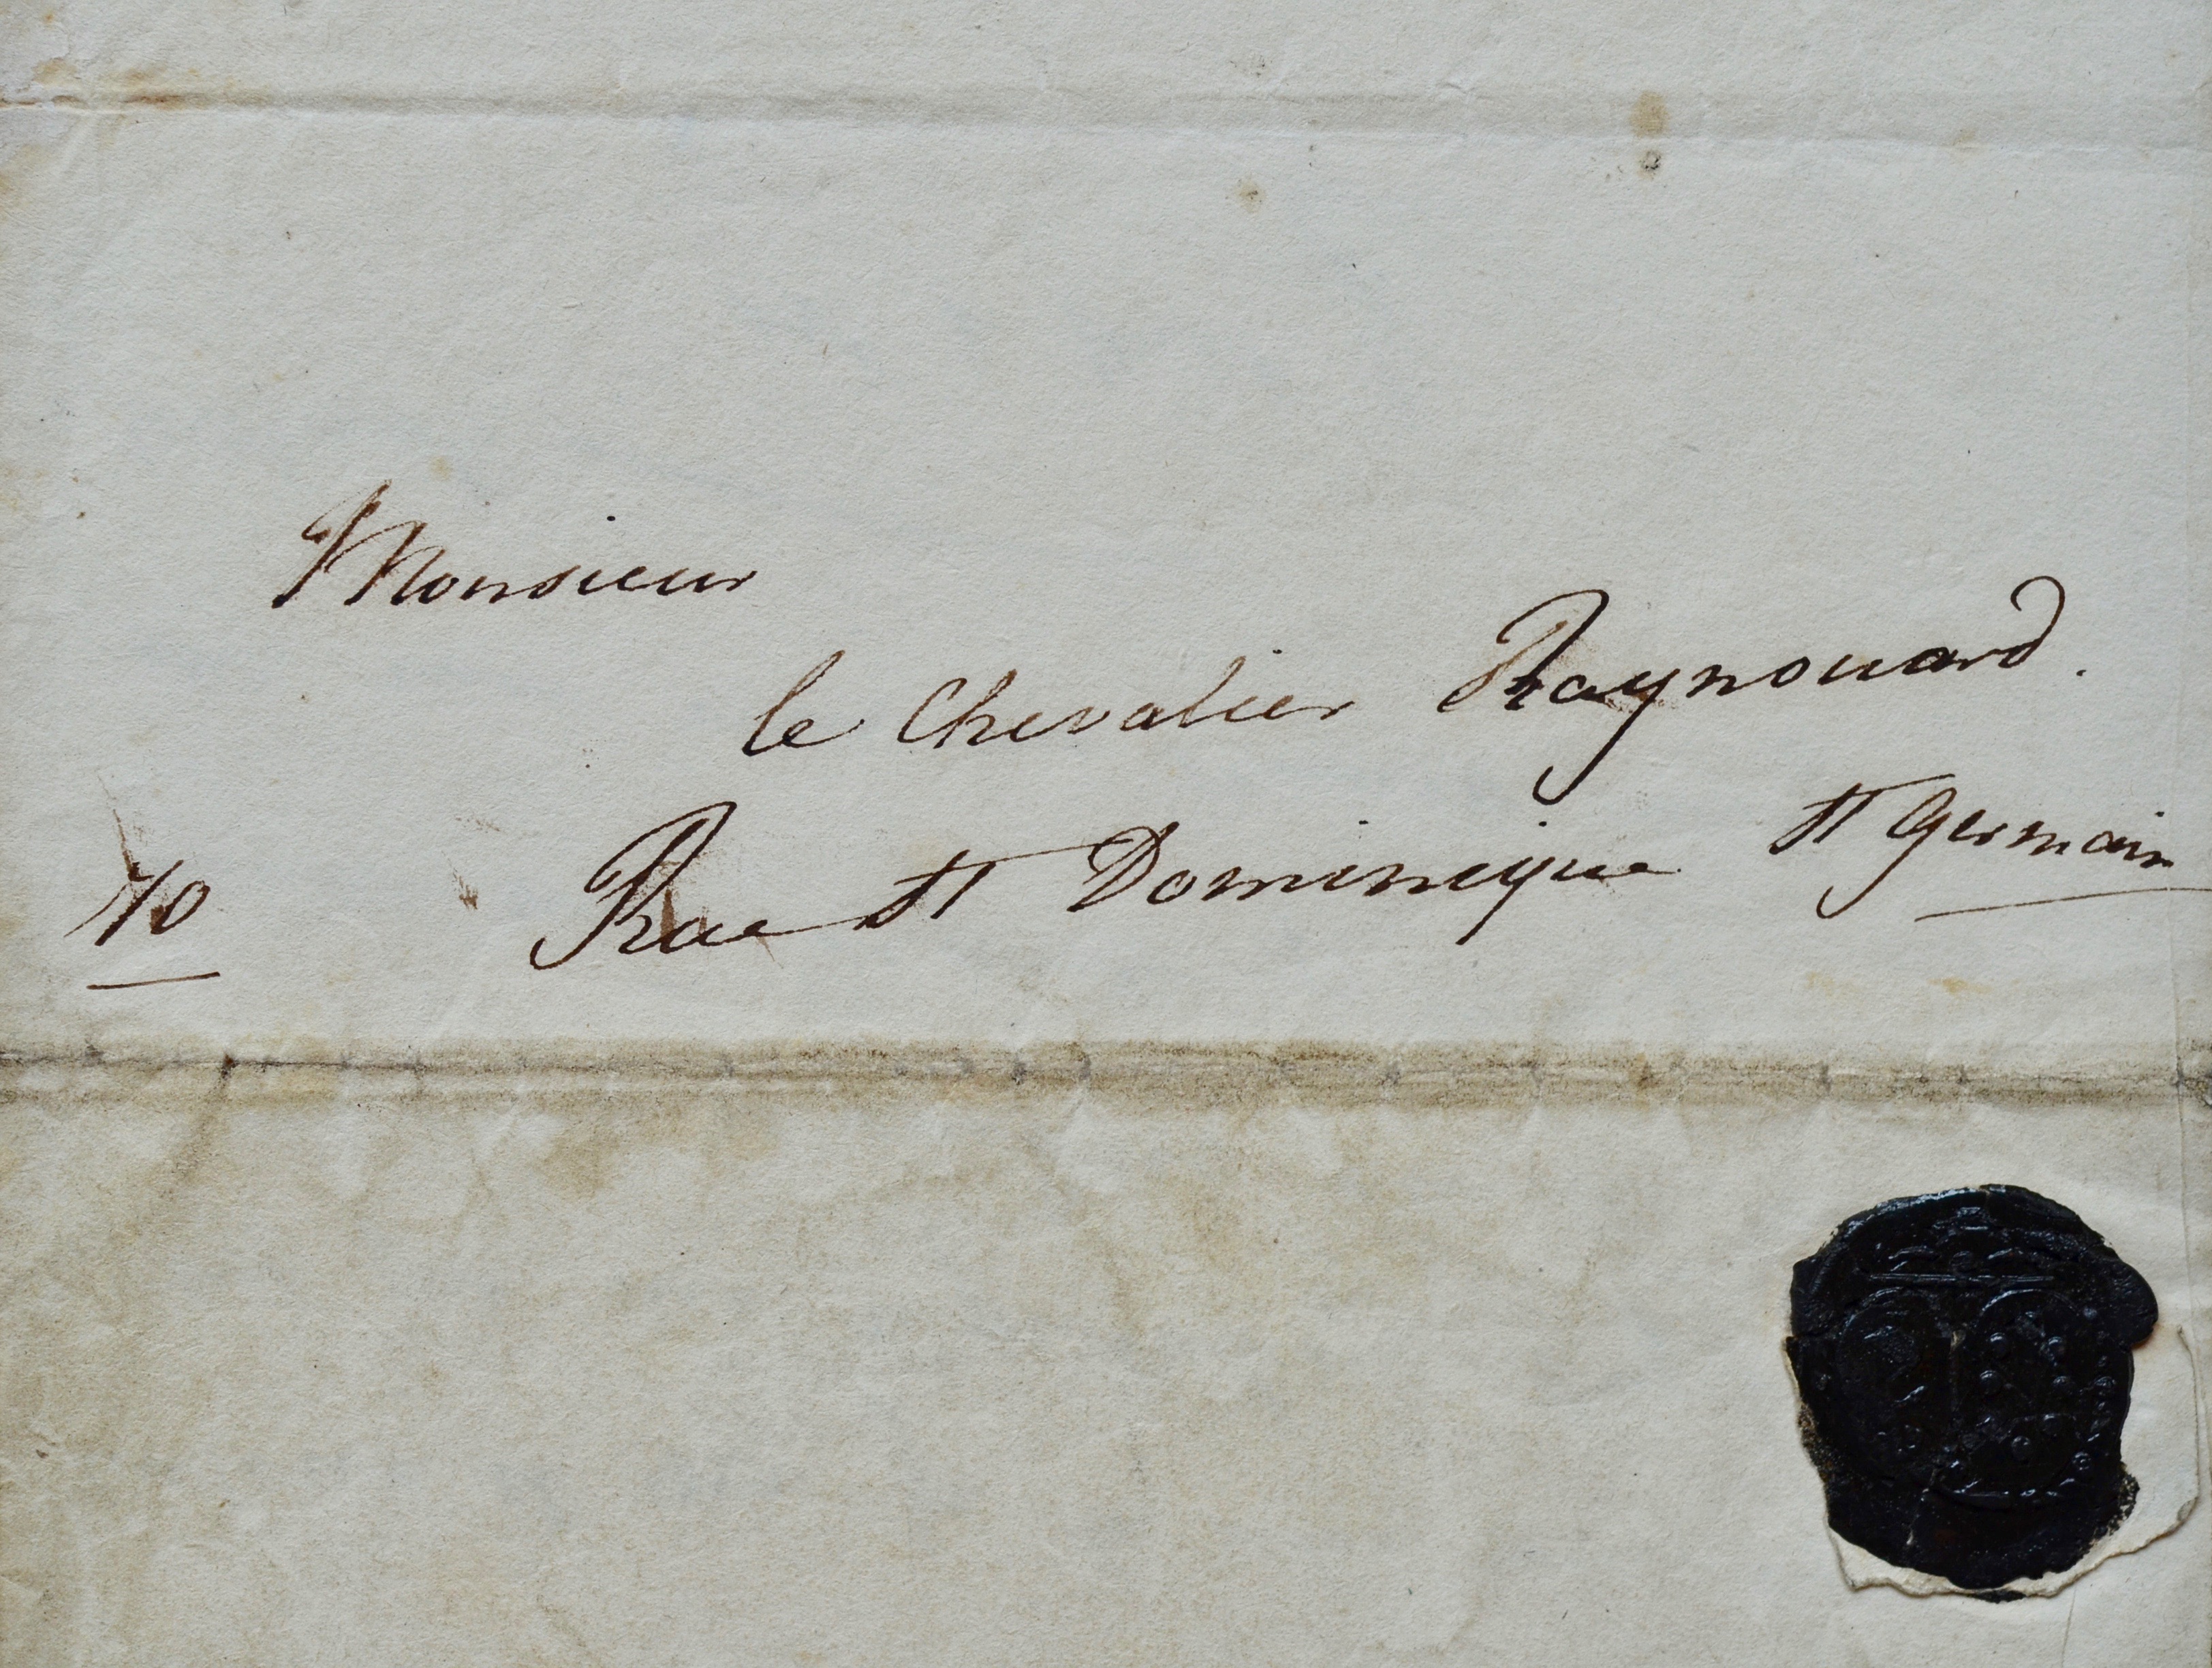 Monsieur
le Chevalier Raynouard.
Rue St Dominique St Germain